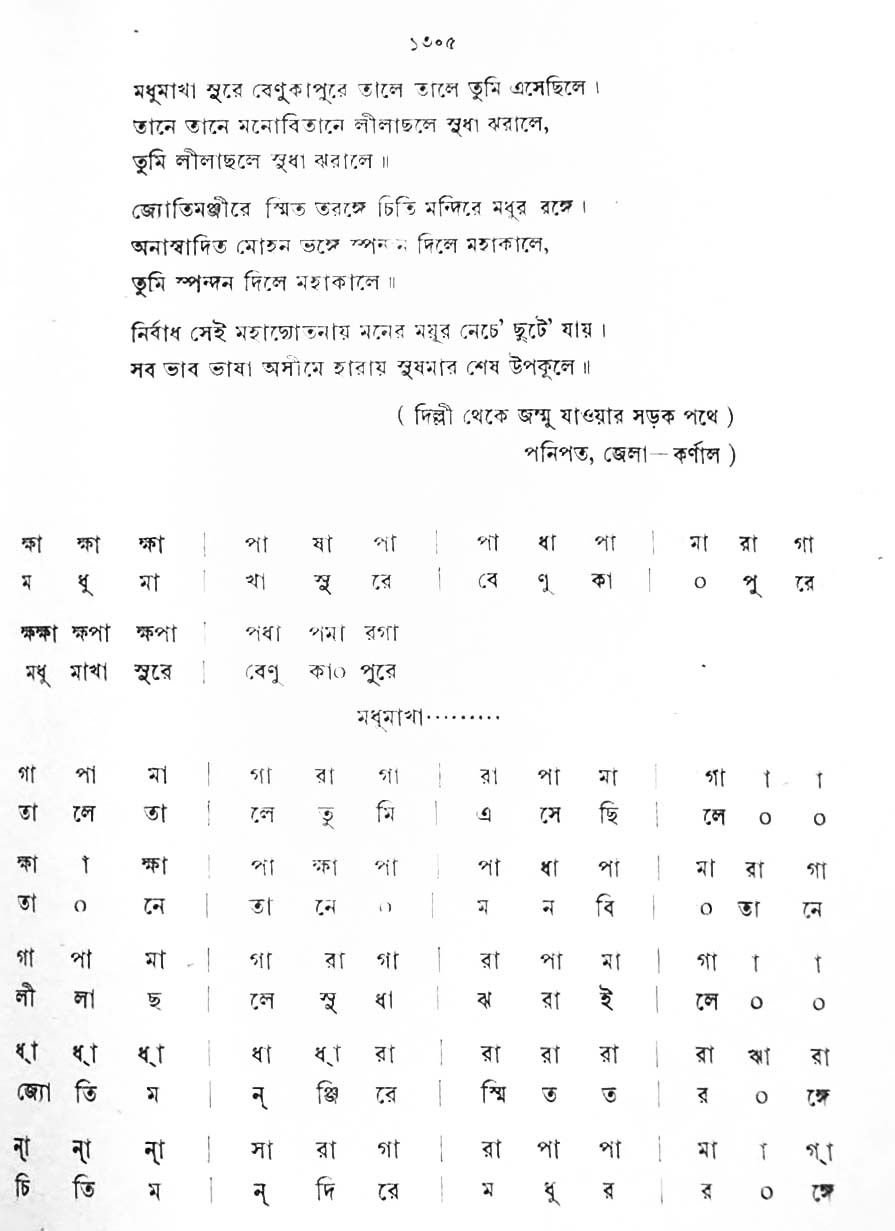 ১৩০৫
মধুমাখা সুরে বেণুকাপুরে তালে তালে তুমি এসেছিলে ।
তানে তানে মনোবিতানে লীলাছলে সুধা ঝরালে,
তুমি লীলাছলে সুধা ঝরালে ॥
জ্যোতিমঞ্জীরে স্মিত তরঙ্গে চিতি মন্দিরে মধুর রঙ্গে ।
অনাস্বাদিত মোহন ভঙ্গে স্পন্দন দিলে মহাকালে,
তুমি স্পন্দন দিলে মহাকালে ॥
নির্বাধ সেই মহাদ্যোতনায় মনের ময়ূর নেচে' ছুটে' যায় ।
সব ভাব ভাষা অসীমে হারায় সুষমার শেষ উপকূলে ॥
( দিল্লী থেকে জম্মু যাওয়ার সড়ক পথে )
পনিপত, জেলা—কর্ণাল )
ক্ষা ক্ষা ক্ষা | পা ষা পা | পা ধা পা | মা রা গা
ম ধু মা | খা সু রে | বে ণু কা | ০ পু রে
ক্ষক্ষা ক্ষপা ক্ষপা | পধা পমা রগা
মধু মাখা সুরে | বেণু কা০ পুরে
মধুমাখা·········
গা পা মা | গা রা গা | রা পা মা | গা া া
তা লে তা | লে তু মি | এ সে ছি | লে ০ ০
ক্ষা া ক্ষা | পা ক্ষা পা | পা ধা পা | মা রা গা
তা ০ নে | তা নে ০ | ম ন বি | ০ তা নে
গা পা মা | গা রা গা | রা পা মা | গা া া
লী লা ছ | লে সু ধা | ঝ রা ই | লে ০ ০
ধ্া ধ্া ধ্া | ধা ধ্া রা | রা রা রা | রা ঝা রা
জ্যো তি ম | ন্ ঞ্জি রে | স্মি ত ত | র ০ ঙ্গে
ন্া ন্া ন্া | সা রা গা | রা পা পা | মা া গ্া
চি তি ম | ন্ দি রে | ম ধু র | র ০ ঙ্গে